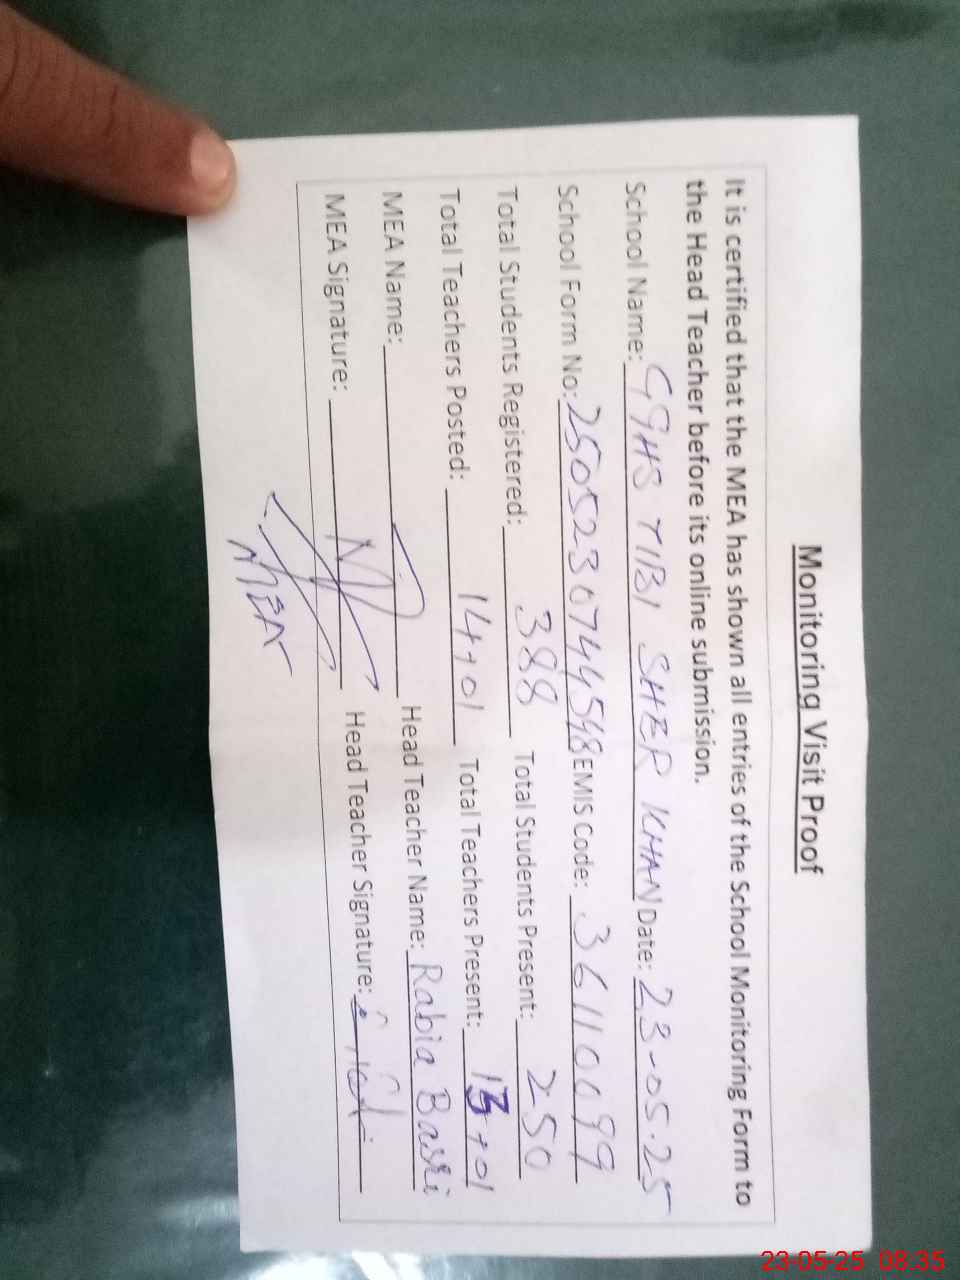 Monitoring Visit Proof
It is certified that the MEA has shown all entries of the School Monitoring Form to
the Head Teacher before its online submission.
School Name: GGHS TIBI SHER KHAN Date: 23-05-25
School Form No: EMIS Code: 36110099
Total Students Registered: 388 Total Students Present: 250
Total Teachers Posted: 14+01 Total Teachers Present: 13+01
MEA Name: Head Teacher Name: Rabia Basri
MEA Signature: Head Teacher Signature:
MEA
23-05-25 08:35